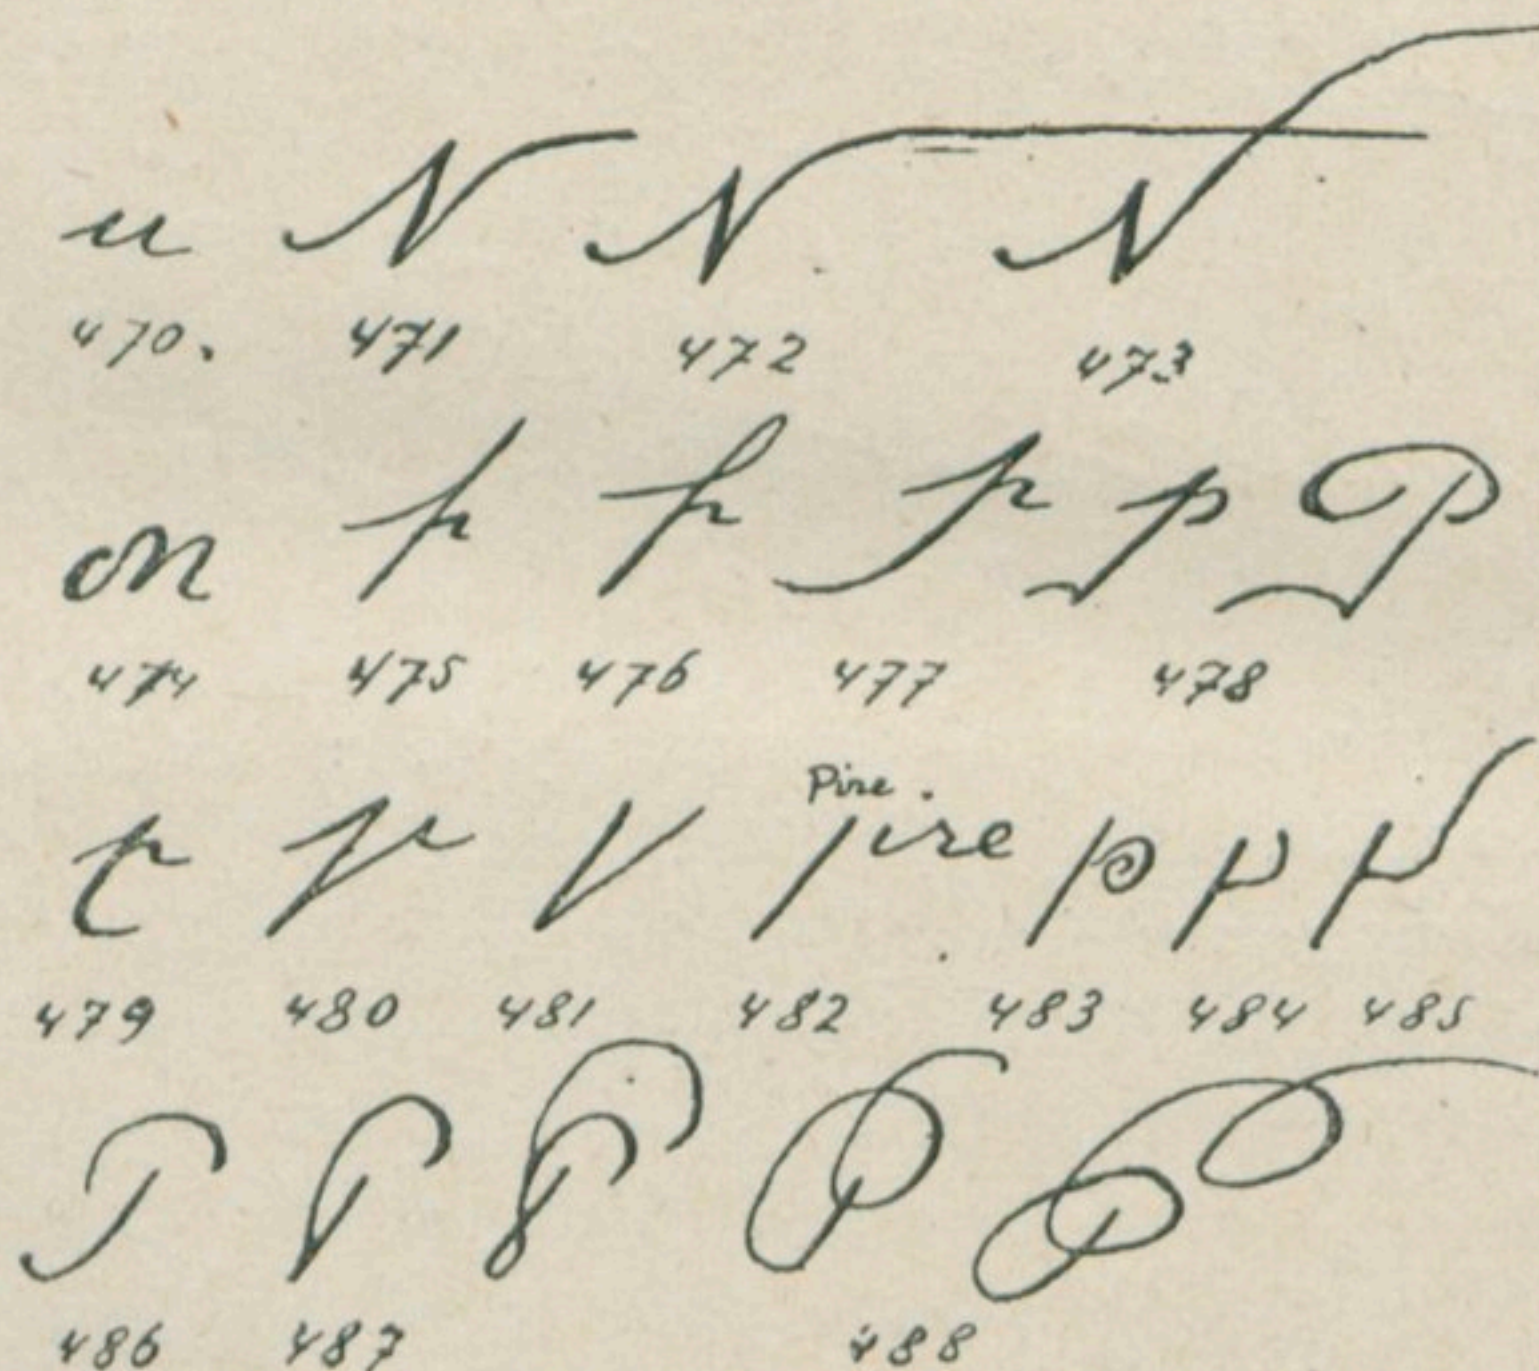 u N N N
470. 471 472 473
n p p p p P
474 475 476 477 478
Pire.
p p p pire p p p
479 480 481 482 483 484 485
P P P P P
486 487 488